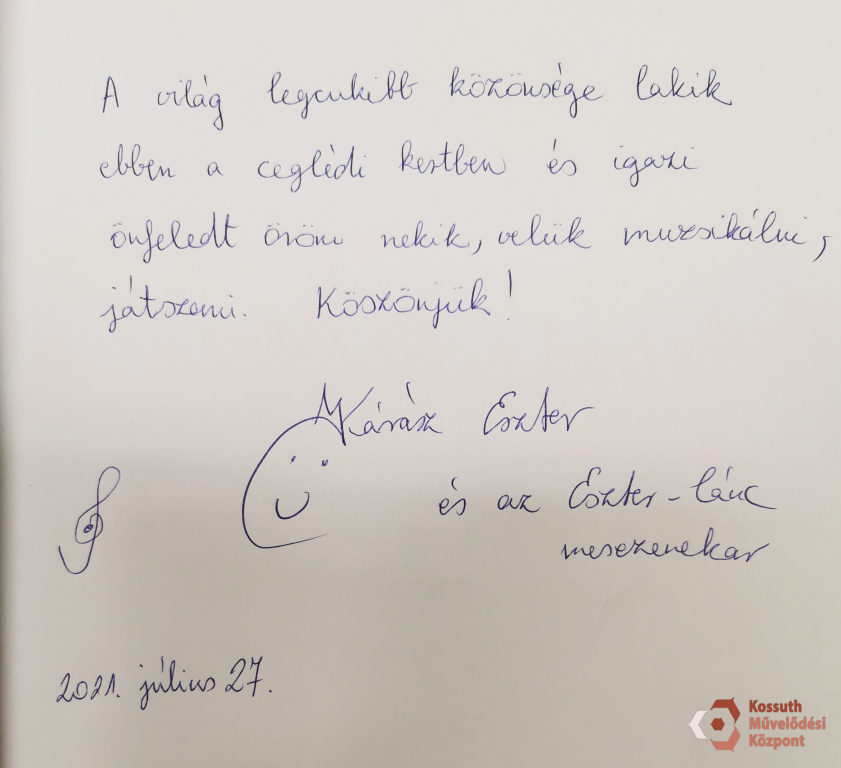 A világ legcukibb közönsége lakik
ebben a ceglédi kertben és igazi
önfeledt öröm nekik, velük muzsikálni,
játszani. Köszönjük!
Kárász Eszter
és az Eszter-lánc
mesezenekar
2021. július 27.
Kossuth
Művelődési
Központ